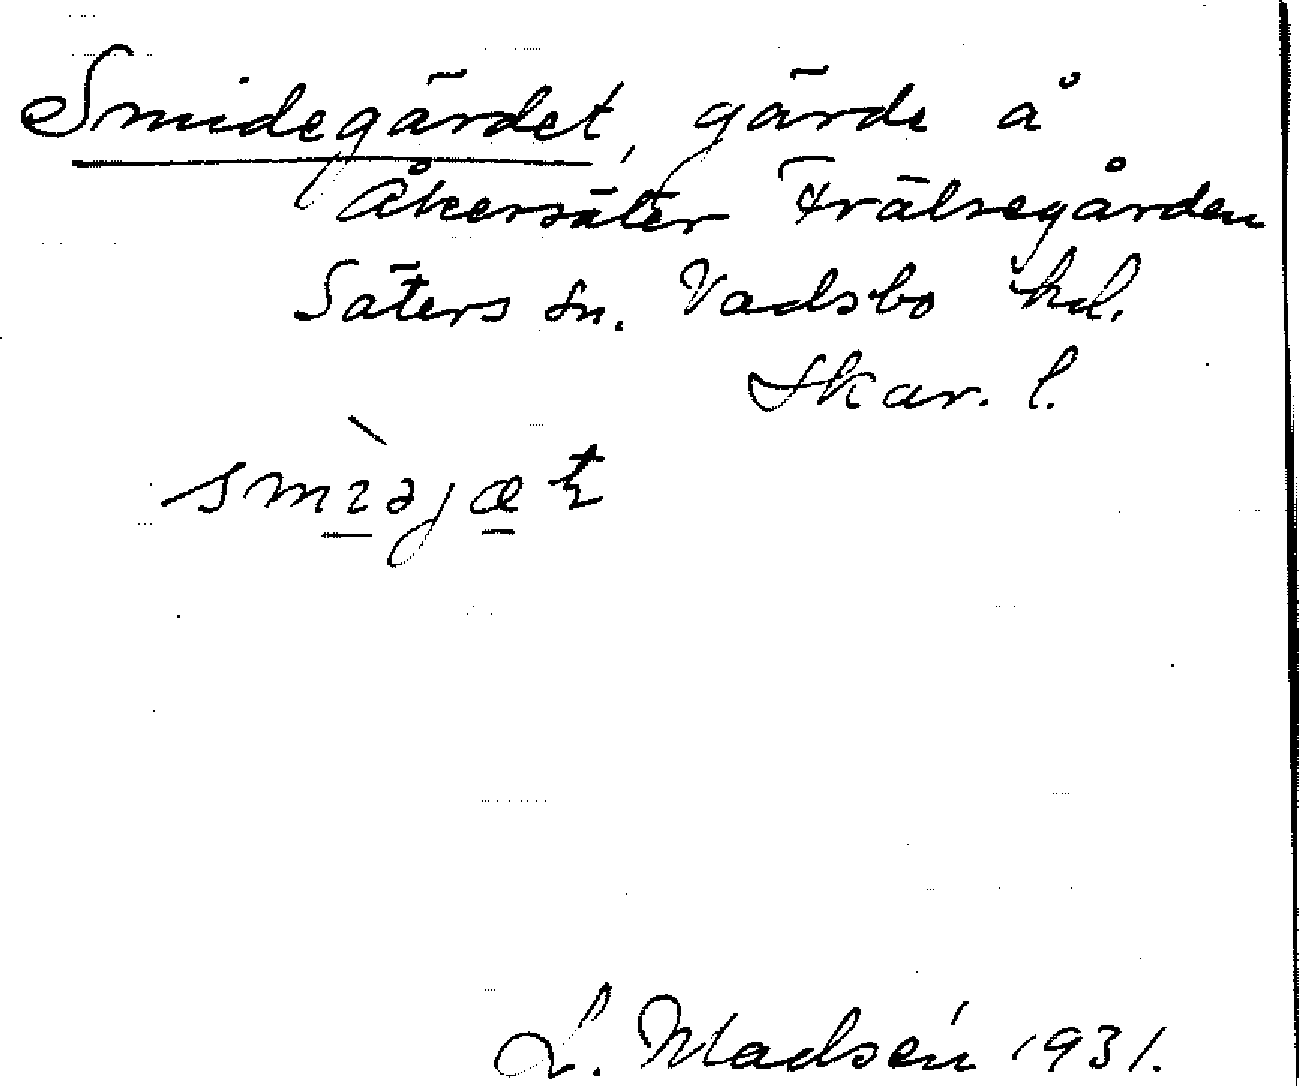 Smidegärdet, gärde å
Åkersäter Frälsegården
Säters sn. Vadsbo hd.
Skar. l.
L. Madsén 1931.